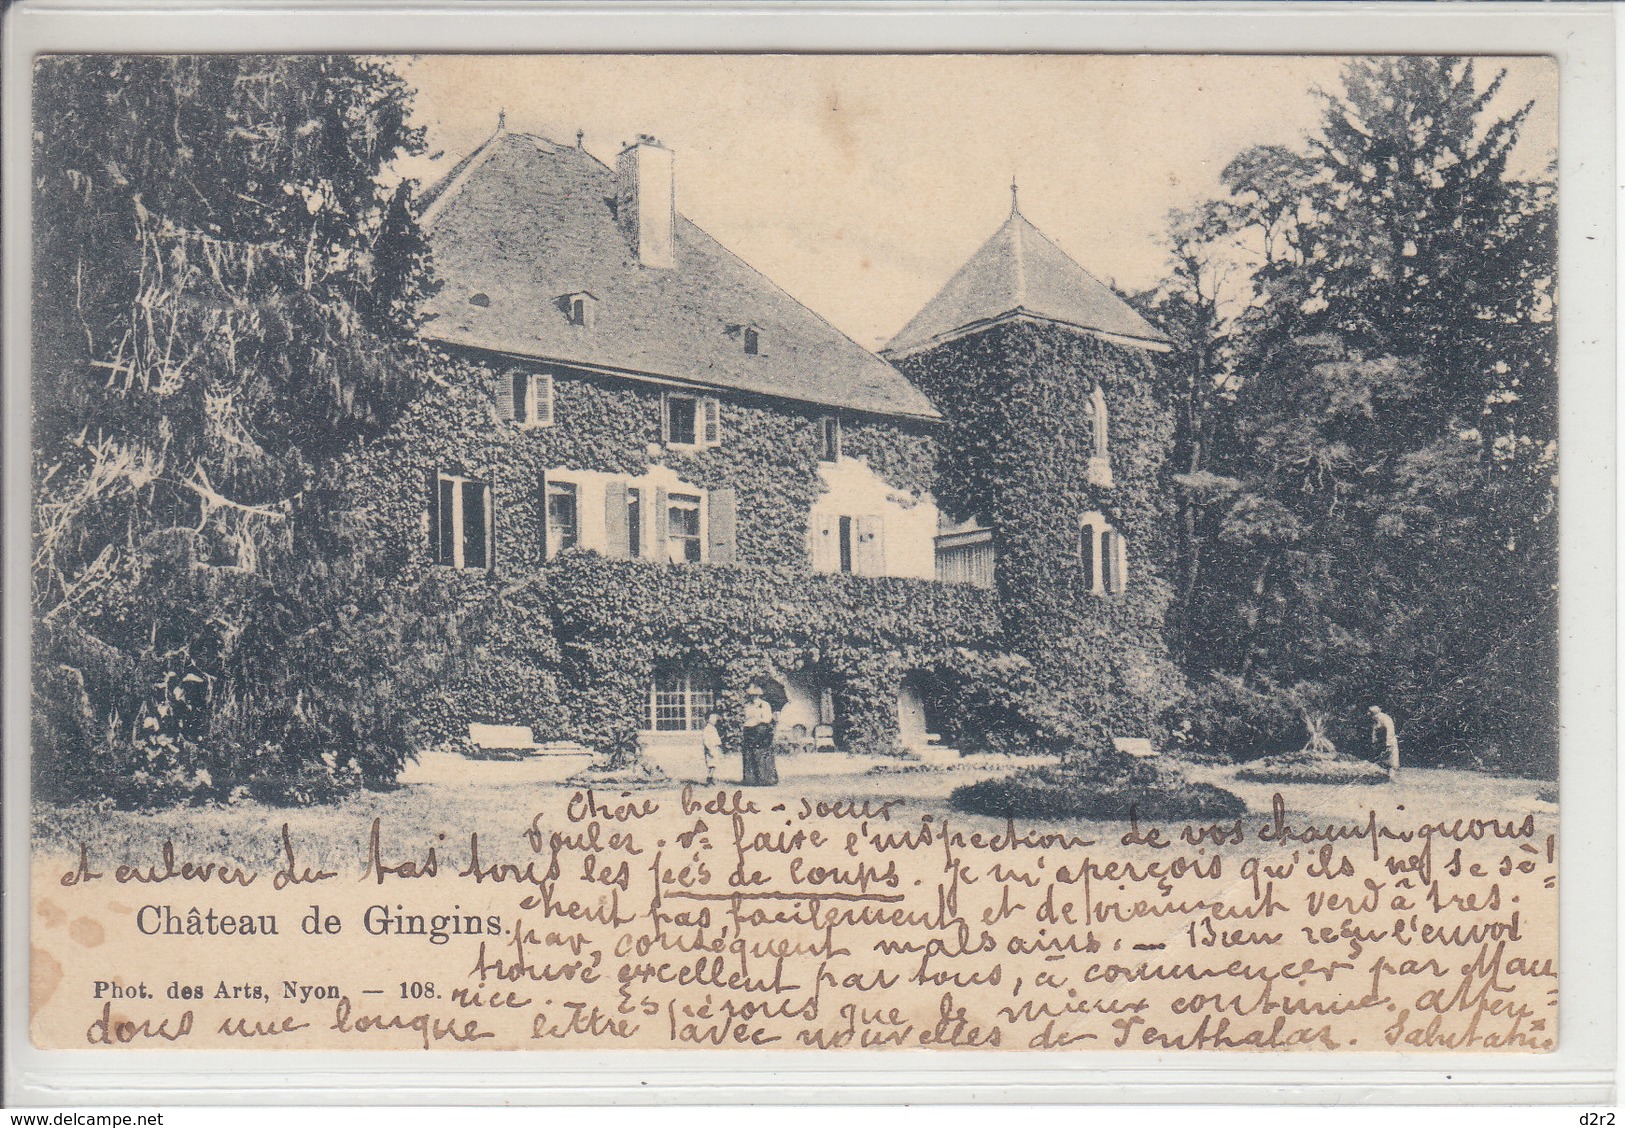 Chère belle-sœur
Voulez-vs faire l'inspection de vos champignons
et enlever du tas tous les piés de loups. Je m'aperçois qu'ils ne se sè=
chent pas facilement et deviennent verdâtres.
par conséquent malsains. — Bien reçu l'envoi
Château de Gingins.
trouvé excellent par tous, à commencer par Mau
Phot. des Arts, Nyon — 108.
rice. — Espérons que le mieux continue. Atten=
dons une longue lettre avec nouvelles de Penthalaz. Salutations
d2r2